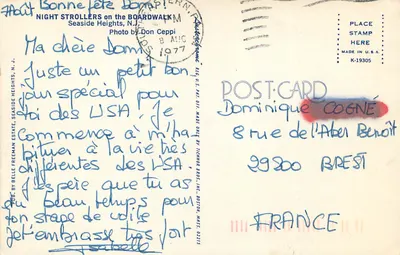 Août Bonne fête Dom!
NIGHT STROLLERS on the BOARDWALK
Seaside Heights, N.J.
Photo by Don Ceppi
PM
8 AUG
1977
Ma chère Dom
Juste un petit bon
jour spécial pour
toi des USA. Je
commence à m'ha
bituer à la vie très
différentes des USA.
J'espère que tu as
eu beau temps pour
ton stage de voile
Je t'embrasse très fort
Isabelle
PLACE
STAMP
HERE
MADE IN U.S.A.
K-19305
POST CARD
Dominique COGNÉ
8 rue de l'Aber Benoît
29200 BREST
FRANCE